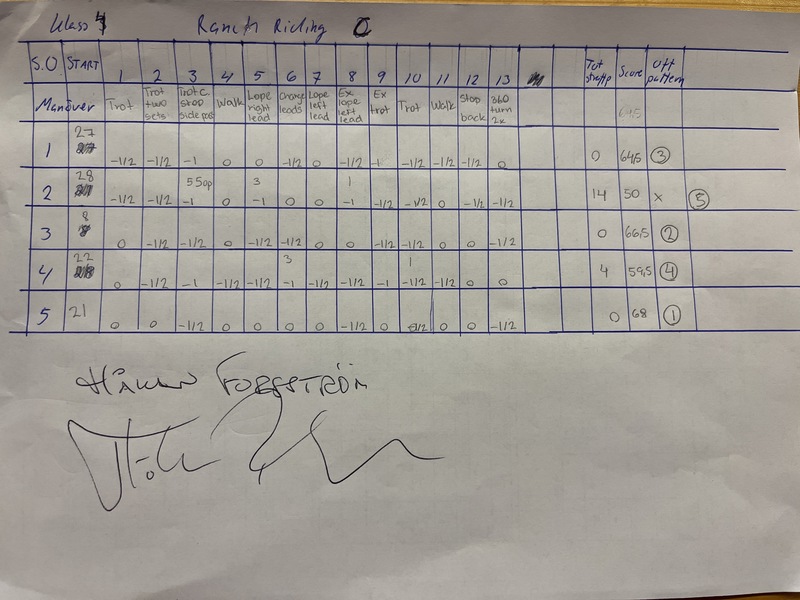 Klass 4 Ranch Riding
S.O START 1 2 3 4 5 6 7 8 9 10 11 12 13 Tot Score Off pattern
Manöver Trot Trot two sets Trot C. stop side pass Walk Lope right lead Change leads Lope left lead Ex lope left lead Ex trot Trot Walk Stop back 360 turn 2x 64,5
1 27 -1/2 -1/2 -1 0 0 -1/2 0 -1/2 -1 -1/2 -1/2 -1/2 0 0 64,5 3
28 5 5op 3 1
2 -1/2 -1/2 -1 0 -1 0 0 -1 -1/2 -1/2 0 -1/2 -1/2 14 50 x 5
3 8 0 -1/2 -1/2 0 -1/2 -1/2 0 0 -1/2 -1/2 0 0 -1/2 0 66,5 2
22 3 1
4 0 -1/2 -1 -1/2 -1/2 -1 -1/2 -1/2 -1 -1/2 -1/2 0 0 4 59,5 4
5 21 0 0 -1/2 0 0 0 0 -1/2 0 -1/2 0 0 -1/2 0 68 1